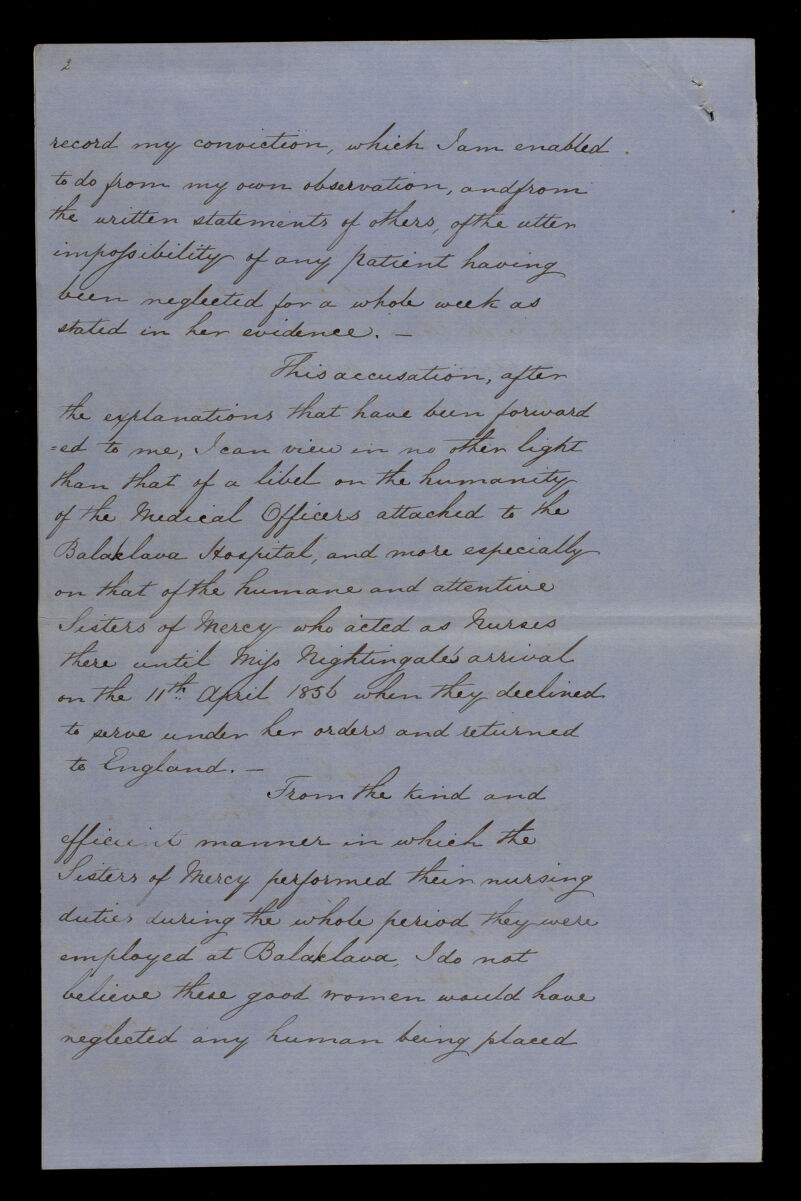 2
record my conviction, which I am enabled
to do from my own observation, and from
the written statements of others, of the utter
impossibility of any patient having
been neglected for a whole week as
stated in her evidence. —
This accusation, after
the explanations that have been forward
=ed to me, I can view in no other light
than that of a libel on the humanity
of the Medical Officers attached to the
Balaklava Hospital, and more especially
on that of the humane and attentive
Sisters of Mercy who acted as Nurses
there until Miss Nightingale's arrival
on the 11th April 1856 when they declined
to serve under her orders and returned
to England. —
From the kind and
efficient manner in which the
Sisters of Mercy performed their nursing
duties during the whole period they were
employed at Balaklava, I do not
believe these good women would have
neglected any human being placed